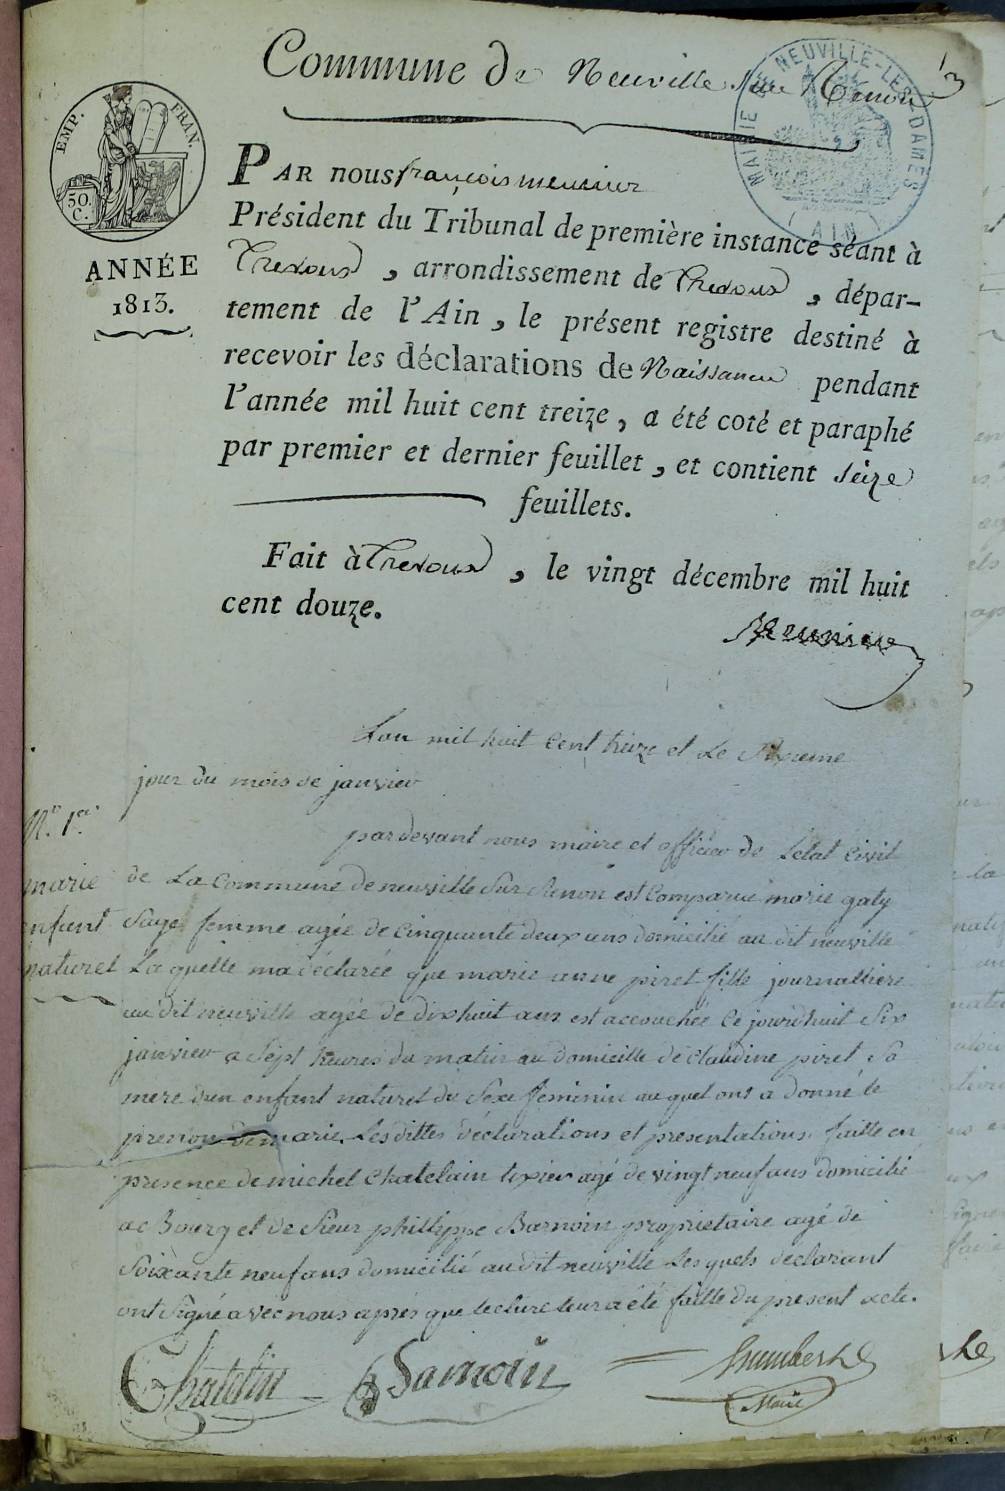 Commune de Neuville sur Renon
MAIRIE DE NEUVILLE-LES-DAMES
(AIN)
EMP. FRAN.
50.
C.
ANNÉE
1813.
PAR nous françois meunier
Président du Tribunal de première instance séant à
Trevoux, arrondissement de Trevoux, dépar-
tement de l'Ain, le présent registre destiné à
recevoir les déclarations de Naissance pendant
l'année mil huit cent treize, a été coté et paraphé
par premier et dernier feuillet, et contient seize
feuillets.
Fait à Trevoux, le vingt décembre mil huit
cent douze.
Meunier
Lan mil huit cent treize et Le Sixieme
jour du mois de janvier
N.° 1.er
marie
enfant
naturel
pardevant nous maire et officier de Letat Civil
de La Commune de neuville Sur Renon est Comparue marie gaty
Sage femme agée de Cinquante deux ans domicilié au dit neuville
La quelle ma déclarée que marie anne piret fille journalliere
au dit neuville agée de dixhuit ans est accouchée Ce jourdhuit Six
janvier a Sept heures du matin au domicille de Claudine piret Sa
mere dun enfant naturel du Sexe feminin au quel ont a donné le
prenom de marie. Les dittes déclarations et presentations faitte en
presence de michel Chatelain texier agé de vingt neuf ans domicilié
a Bourg et de Sieur phillippe Barnoin proprietaire agé de
Soixante neuf ans domicilié au dit neuville Les quels déclarant
ont Signé avec nous aprés que lecture leur a été faitte du present acte.
Chatelin Barnoin humbert
Maire